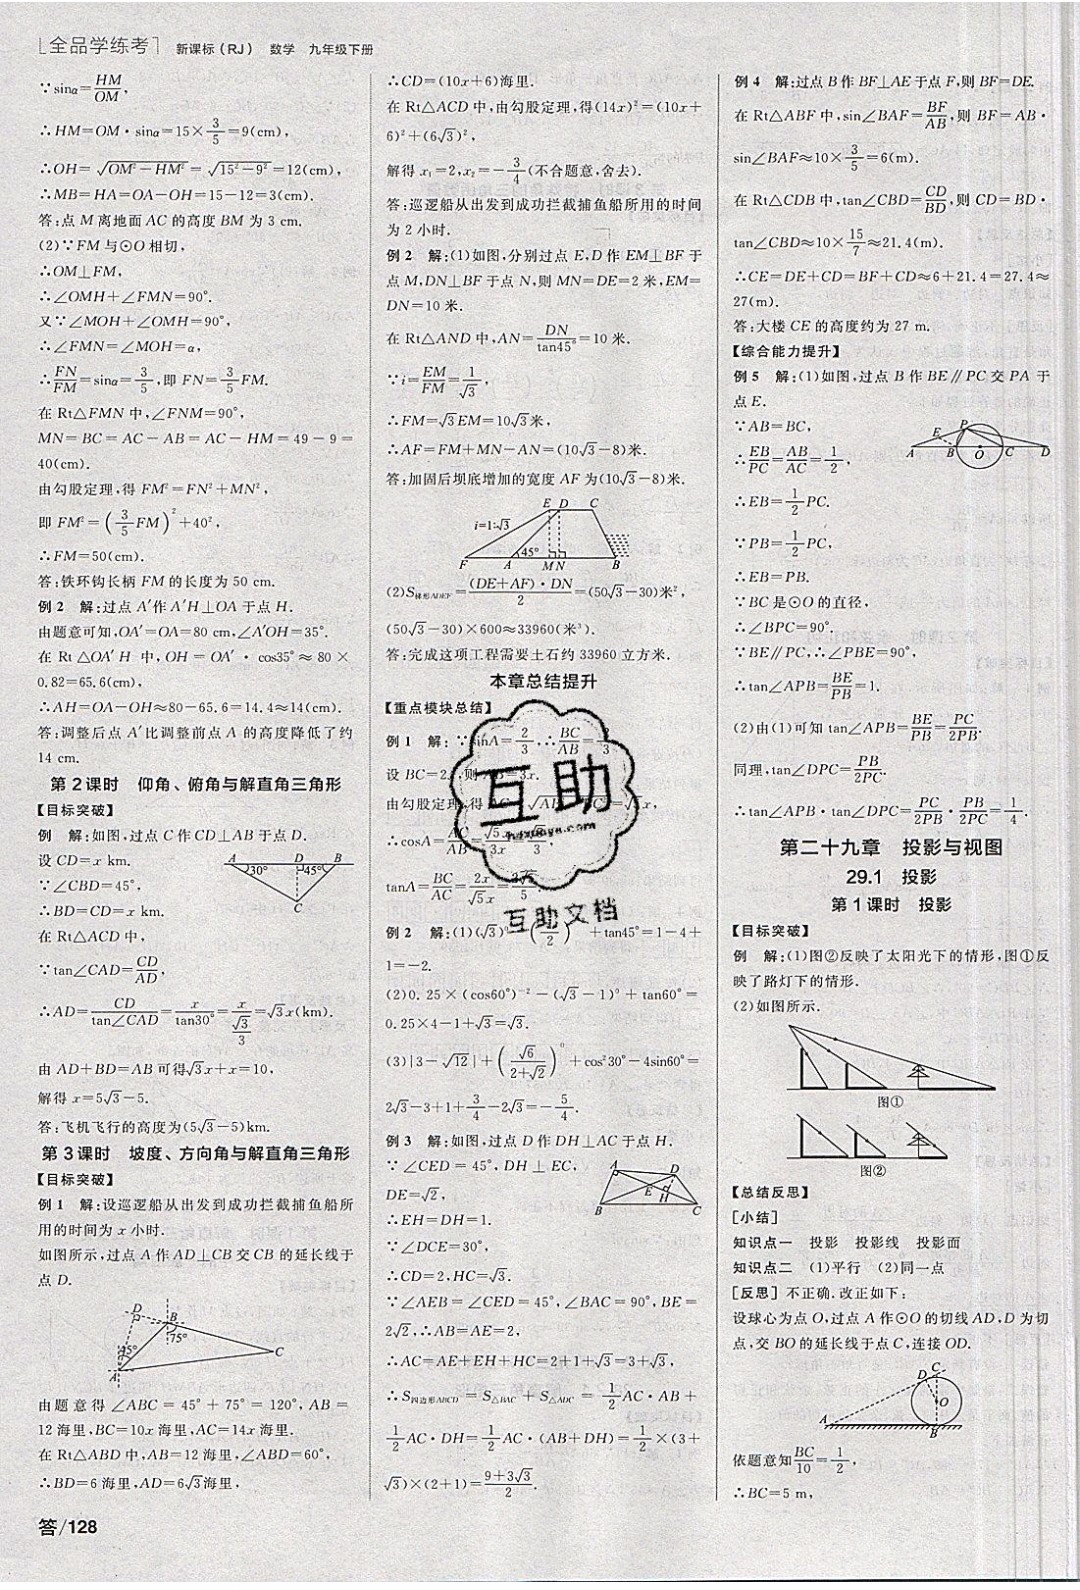 全品学练考 新课标(RJ) 数学 九年级下册
∵sinα=HM/OM,
∴HM=OM·sinα=15×3/5=9(cm),
∴OH=√(OM²−HM²)=√(15²−9²)=12(cm),
∴MB=HA=OA−OH=15−12=3(cm).
答:点 M 离地面 AC 的高度 BM 为 3 cm.
(2)∵FM与⊙O 相切,
∴OM⊥FM,
∴∠OMH+∠FMN=90°.
又∵∠MOH+∠OMH=90°,
∴∠FMN=∠MOH=α,
∴FN/FM=sinα=3/5,即 FN=3/5FM.
在 Rt△FMN 中,∠FNM=90°,
MN=BC=AC−AB=AC−HM=49−9=
40(cm).
由勾股定理,得 FM²=FN²+MN²,
即 FM²=(3/5FM)²+40²,
∴FM=50(cm).
答:铁环钩长柄 FM 的长度为 50 cm.
例 2 解:过点 A′作 A′H⊥OA 于点 H.
由题意可知,OA′=OA=80 cm,∠A′OH=35°.
在 Rt△OA′H 中,OH=OA′·cos35°≈80×
0.82=65.6(cm),
∴AH=OA−OH≈80−65.6=14.4≈14(cm).
答:调整后点 A′比调整前点 A 的高度降低了约
14 cm.
第 2 课时 仰角、俯角与解直角三角形
【目标突破】
例 解:如图,过点 C 作 CD⊥AB 于点 D.
设 CD=x km.
∵∠CBD=45°,
∴BD=CD=x km.
A D B 30° 45° C
在 Rt△ACD 中,
∵tan∠CAD=CD/AD,
∴AD=CD/tan∠CAD=x/tan30°=x/(√3/3)=√3x(km).
由 AD+BD=AB 可得√3x+x=10,
解得 x=5√3−5.
答:飞机飞行的高度为(5√3−5)km.
第 3 课时 坡度、方向角与解直角三角形
【目标突破】
例 1 解:设巡逻船从出发到成功拦截捕鱼船所
用的时间为 x 小时.
如图所示,过点 A 作 AD⊥CB 交 CB 的延长线于
点 D.
D B 75° 45° C A
由题意得∠ABC=45°+75°=120°,AB=
12 海里,BC=10x 海里,AC=14x 海里.
在 Rt△ABD 中,AB=12 海里,∠ABD=60°,
∴BD=6 海里,AD=6√3海里,
答/128
∴CD=(10x+6)海里.
在 Rt△ACD 中,由勾股定理,得(14x)²=(10x+
6)²+(6√3)²,
解得 x₁=2,x₂=−3/4(不合题意,舍去).
答:巡逻船从出发到成功拦截捕鱼船所用的时间
为 2 小时.
例 2 解:(1)如图,分别过点 E,D 作 EM⊥BF 于
点 M,DN⊥BF 于点 N,则 MN=DE=2 米,EM=
DN=10 米.
在 Rt△AND 中,AN=DN/tan45°=10 米.
∵i=EM/FM=1/√3,
∴FM=√3EM=10√3米,
∴AF=FM+MN−AN=(10√3−8)米.
答:加固后坝底增加的宽度 AF 为(10√3−8)米.
E D C i=1:√3 45° F A M N B
(2)S梯形ADEF=(DE+AF)·DN/2=(50√3−30)米²,
(50√3−30)×600≈33960(米³).
答:完成这项工程需要土石约 33960 立方米.
本章总结提升
【重点模块总结】
例 1 解:∵sinA=2/3,∴BC/AB=2/3
设 BC=2x,则AB=3x.
由勾股定理,得
∴cosA=
tanA=BC/AC=2x/√5x=2√5/5.
例 2 解:(1)(√3)
+tan45°=1−4+
1=−2.
(2)0.25×(cos60°)⁻²−(√3−1)⁰+tan60°=
0.25×4−1+√3=√3.
(3)|3−√12|+(√6/(2+√2))⁰+cos²30°−4sin60°=
2√3−3+1+3/4−2√3=−5/4.
例 3 解:如图,过点 D 作 DH⊥AC 于点 H.
∵∠CED=45°,DH⊥EC,
DE=√2,
∴EH=DH=1.
A D E H B C
∵∠DCE=30°,
∴CD=2,HC=√3.
∵∠AEB=∠CED=45°,∠BAC=90°,BE=
2√2,∴AB=AE=2,
∴AC=AE+EH+HC=2+1+√3=3+√3,
∴S四边形ABCD=S△BAC+S△ADC=1/2AC·AB+
1/2AC·DH=1/2AC·(AB+DH)=1/2×(3+
√3)×(2+1)=(9+3√3)/2.
例 4 解:过点 B 作 BF⊥AE 于点 F,则 BF=DE.
在 Rt△ABF 中,sin∠BAF=BF/AB,则 BF=AB·
sin∠BAF≈10×3/5=6(m).
在 Rt△CDB 中,tan∠CBD=CD/BD,则 CD=BD·
tan∠CBD≈10×15/7≈21.4(m).
∴CE=DE+CD=BF+CD≈6+21.4=27.4≈
27(m).
答:大楼 CE 的高度约为 27 m.
【综合能力提升】
例 5 解:(1)如图,过点 B 作 BE∥PC 交 PA 于
点 E.
∵AB=BC,
∴EB/PC=AB/AC=1/2,
E P A B O C D
∴EB=1/2PC.
∵PB=1/2PC,
∴EB=PB.
∵BC 是⊙O 的直径,
∴∠BPC=90°.
∵BE∥PC,∴∠PBE=90°,
∴tan∠APB=BE/PB=1.
(2)由(1)可知 tan∠APB=BE/PB=PC/2PB.
同理,tan∠DPC=PB/2PC.
∴tan∠APB·tan∠DPC=PC/2PB·PB/2PC=1/4.
第二十九章 投影与视图
29.1 投影
第 1 课时 投影
【目标突破】
例 解:(1)图②反映了太阳光下的情形,图①反
映了路灯下的情形.
(2)如图所示.
图①
图②
【总结反思】
[小结]
知识点一 投影 投影线 投影面
知识点二 (1)平行 (2)同一点
[反思] 不正确.改正如下:
设球心为点 O,过点 A 作⊙O 的切线 AD,D 为切
点,交 BO 的延长线于点 C,连接 OD.
C D O A B
依题意知BC/10=1/2,
∴BC=5 m,
互助
hdzuoye.com
互助文档